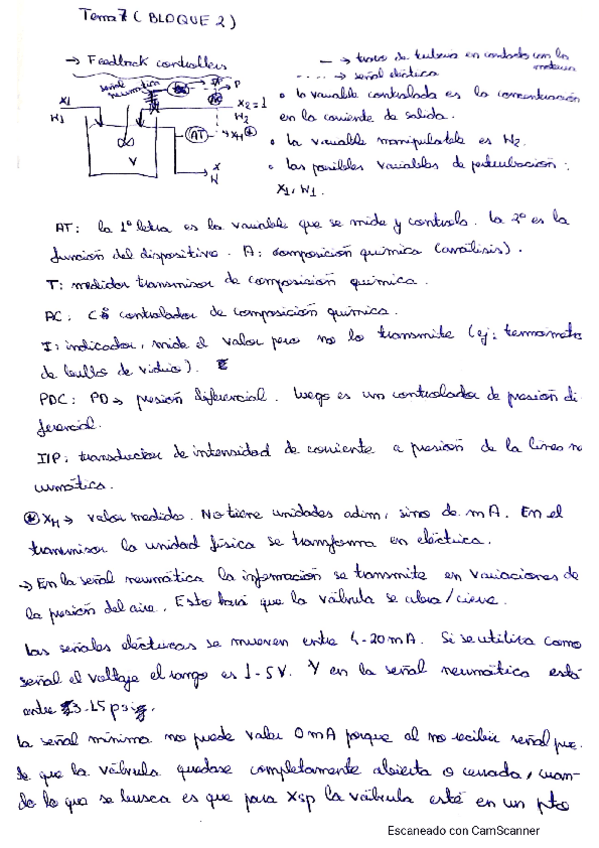 Tema 7 (BLOQUE 2)
→ Feedback controllers
— → toma de tuberia en contacto con los
---- → señal eléctrica
señal
neumática
P
x1
W1
x2=1
W2
V
AT
xM
x
W
• la variable controlada es la concentración
en la corriente de salida.
• La variable manipulable es W2.
• Las posibles variables de perturbación:
x1, W1.
AT: la 1ª letra es la variable que se mide y controla. La 2ª es la
función del dispositivo. A: composición química (análisis).
T: medidor transmisor de composición química.
AC: controlador de composición química.
I: indicador, mide el valor pero no lo transmite (ej: termómetro
de bulbo de vidrio).
PDC: PD → presión diferencial. Luego es un controlador de presión di
ferencial.
I/P: transductor de intensidad de corriente a presión de la línea ne
umática.
xM → valor medido. No tiene unidades adim, sino de mA. En el
transmisor la unidad física se transforma en eléctrica.
→ En la señal neumática la información se transmite en variaciones de
la presión del aire. Esto hará que la válvula se abra/cierre.
Las señales eléctricas se mueven entre 4-20 mA. Si se utiliza como
señal el voltaje el rango es 1-5V. Y en la señal neumática está
entre 3-15 psig.
La señal mínima no puede valer 0 mA porque al no recibir señal pue-
de que la válvula quedase completamente abierta o cerrada, cuan-
do lo que se busca es que para xsp la válvula esté en un pto
Escaneado con CamScanner